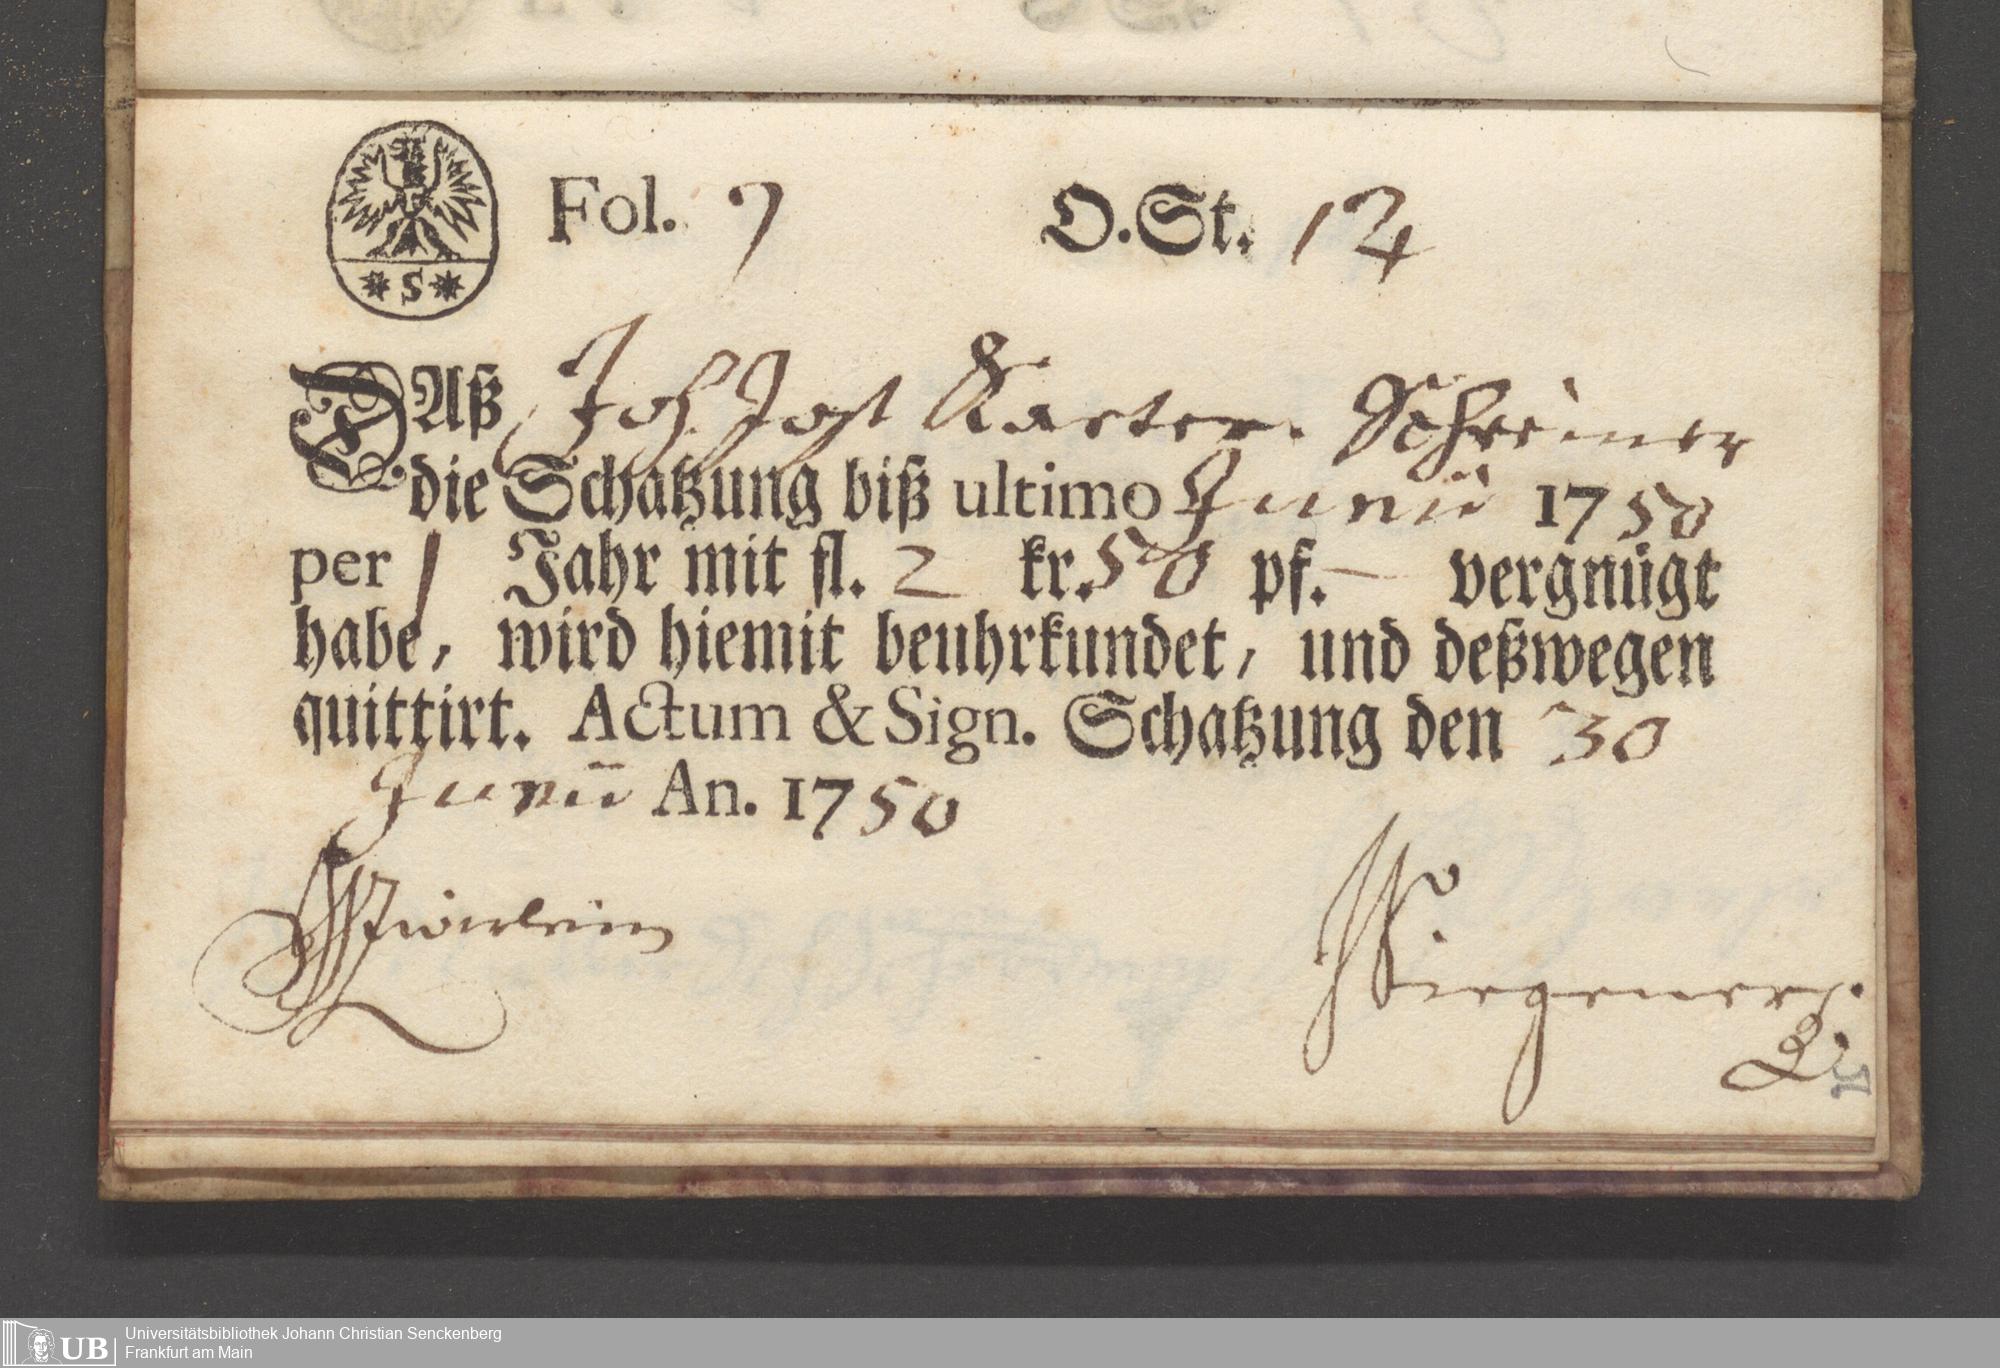 Fol. 7 O.St. 12
* S *
DAß Joh. Jost Karter. Schreiner
die Schatzung biß ultimo Junii 1750
per 1 Jahr mit fl. 2 kr. 50 pf. — vergnügt
habe, wird hiemit beuhrkundet, und deßwegen
quittirt. Actum & Sign. Schatzung den 30
Junii An. 1750
Wiegener
UB Universitätsbibliothek Johann Christian Senckenberg
Frankfurt am Main